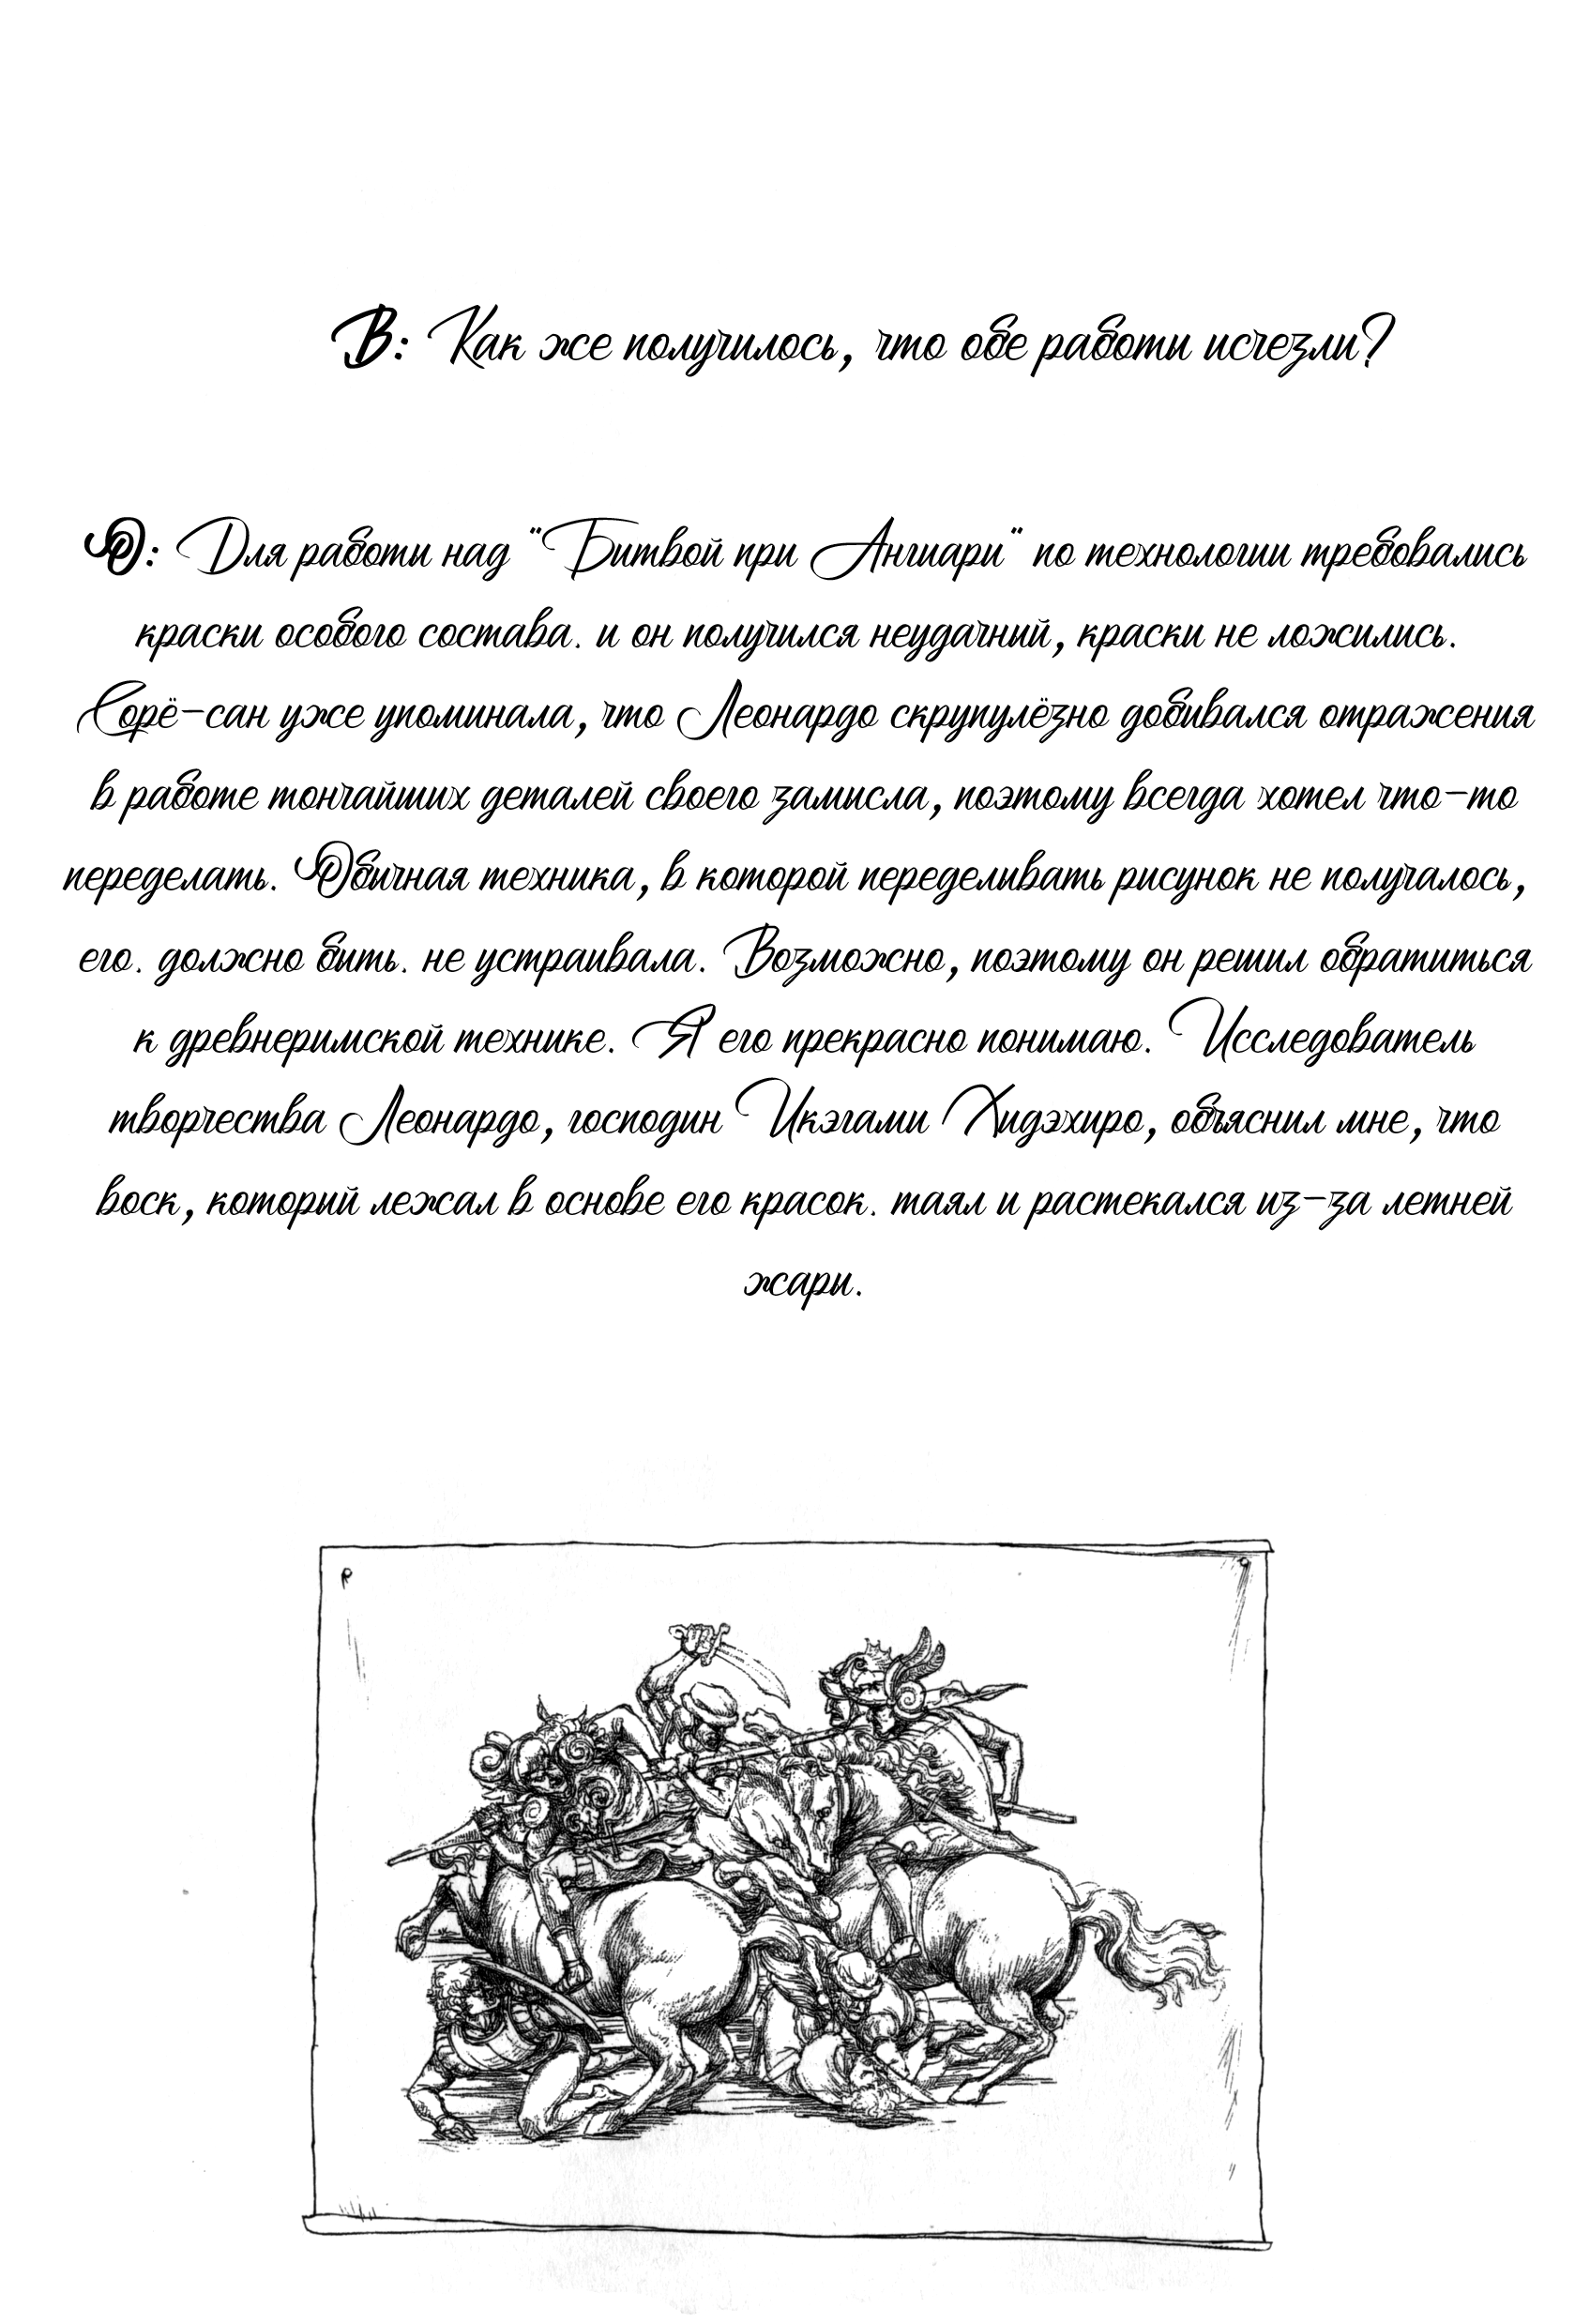 В: Как же получилось, что обе работи исчезли?
О: Для работи над "Битвой при Ангиари" по технологии требовались
краски особого состава. и он получился неудачний, краски не ложились.
Сорё-сан уже упоминала, что Леонардо скрупулёзно добивался отражения
в работе тончайших деталей своего замисла, поэтому всегда хотел что-то
переделать. Обичная техника, в которой переделивать рисунок не получалось,
его. должно бить. не устраивала. Возможно, поэтому он решил обратиться
к древнеримской технике. Я его прекрасно понимаю. Исследователь
творчества Леонардо, господин Икэгами Хидэхиро, объяснил мне, что
воск, которий лежал в основе его красок. таял и растекался из-за летней
жари.